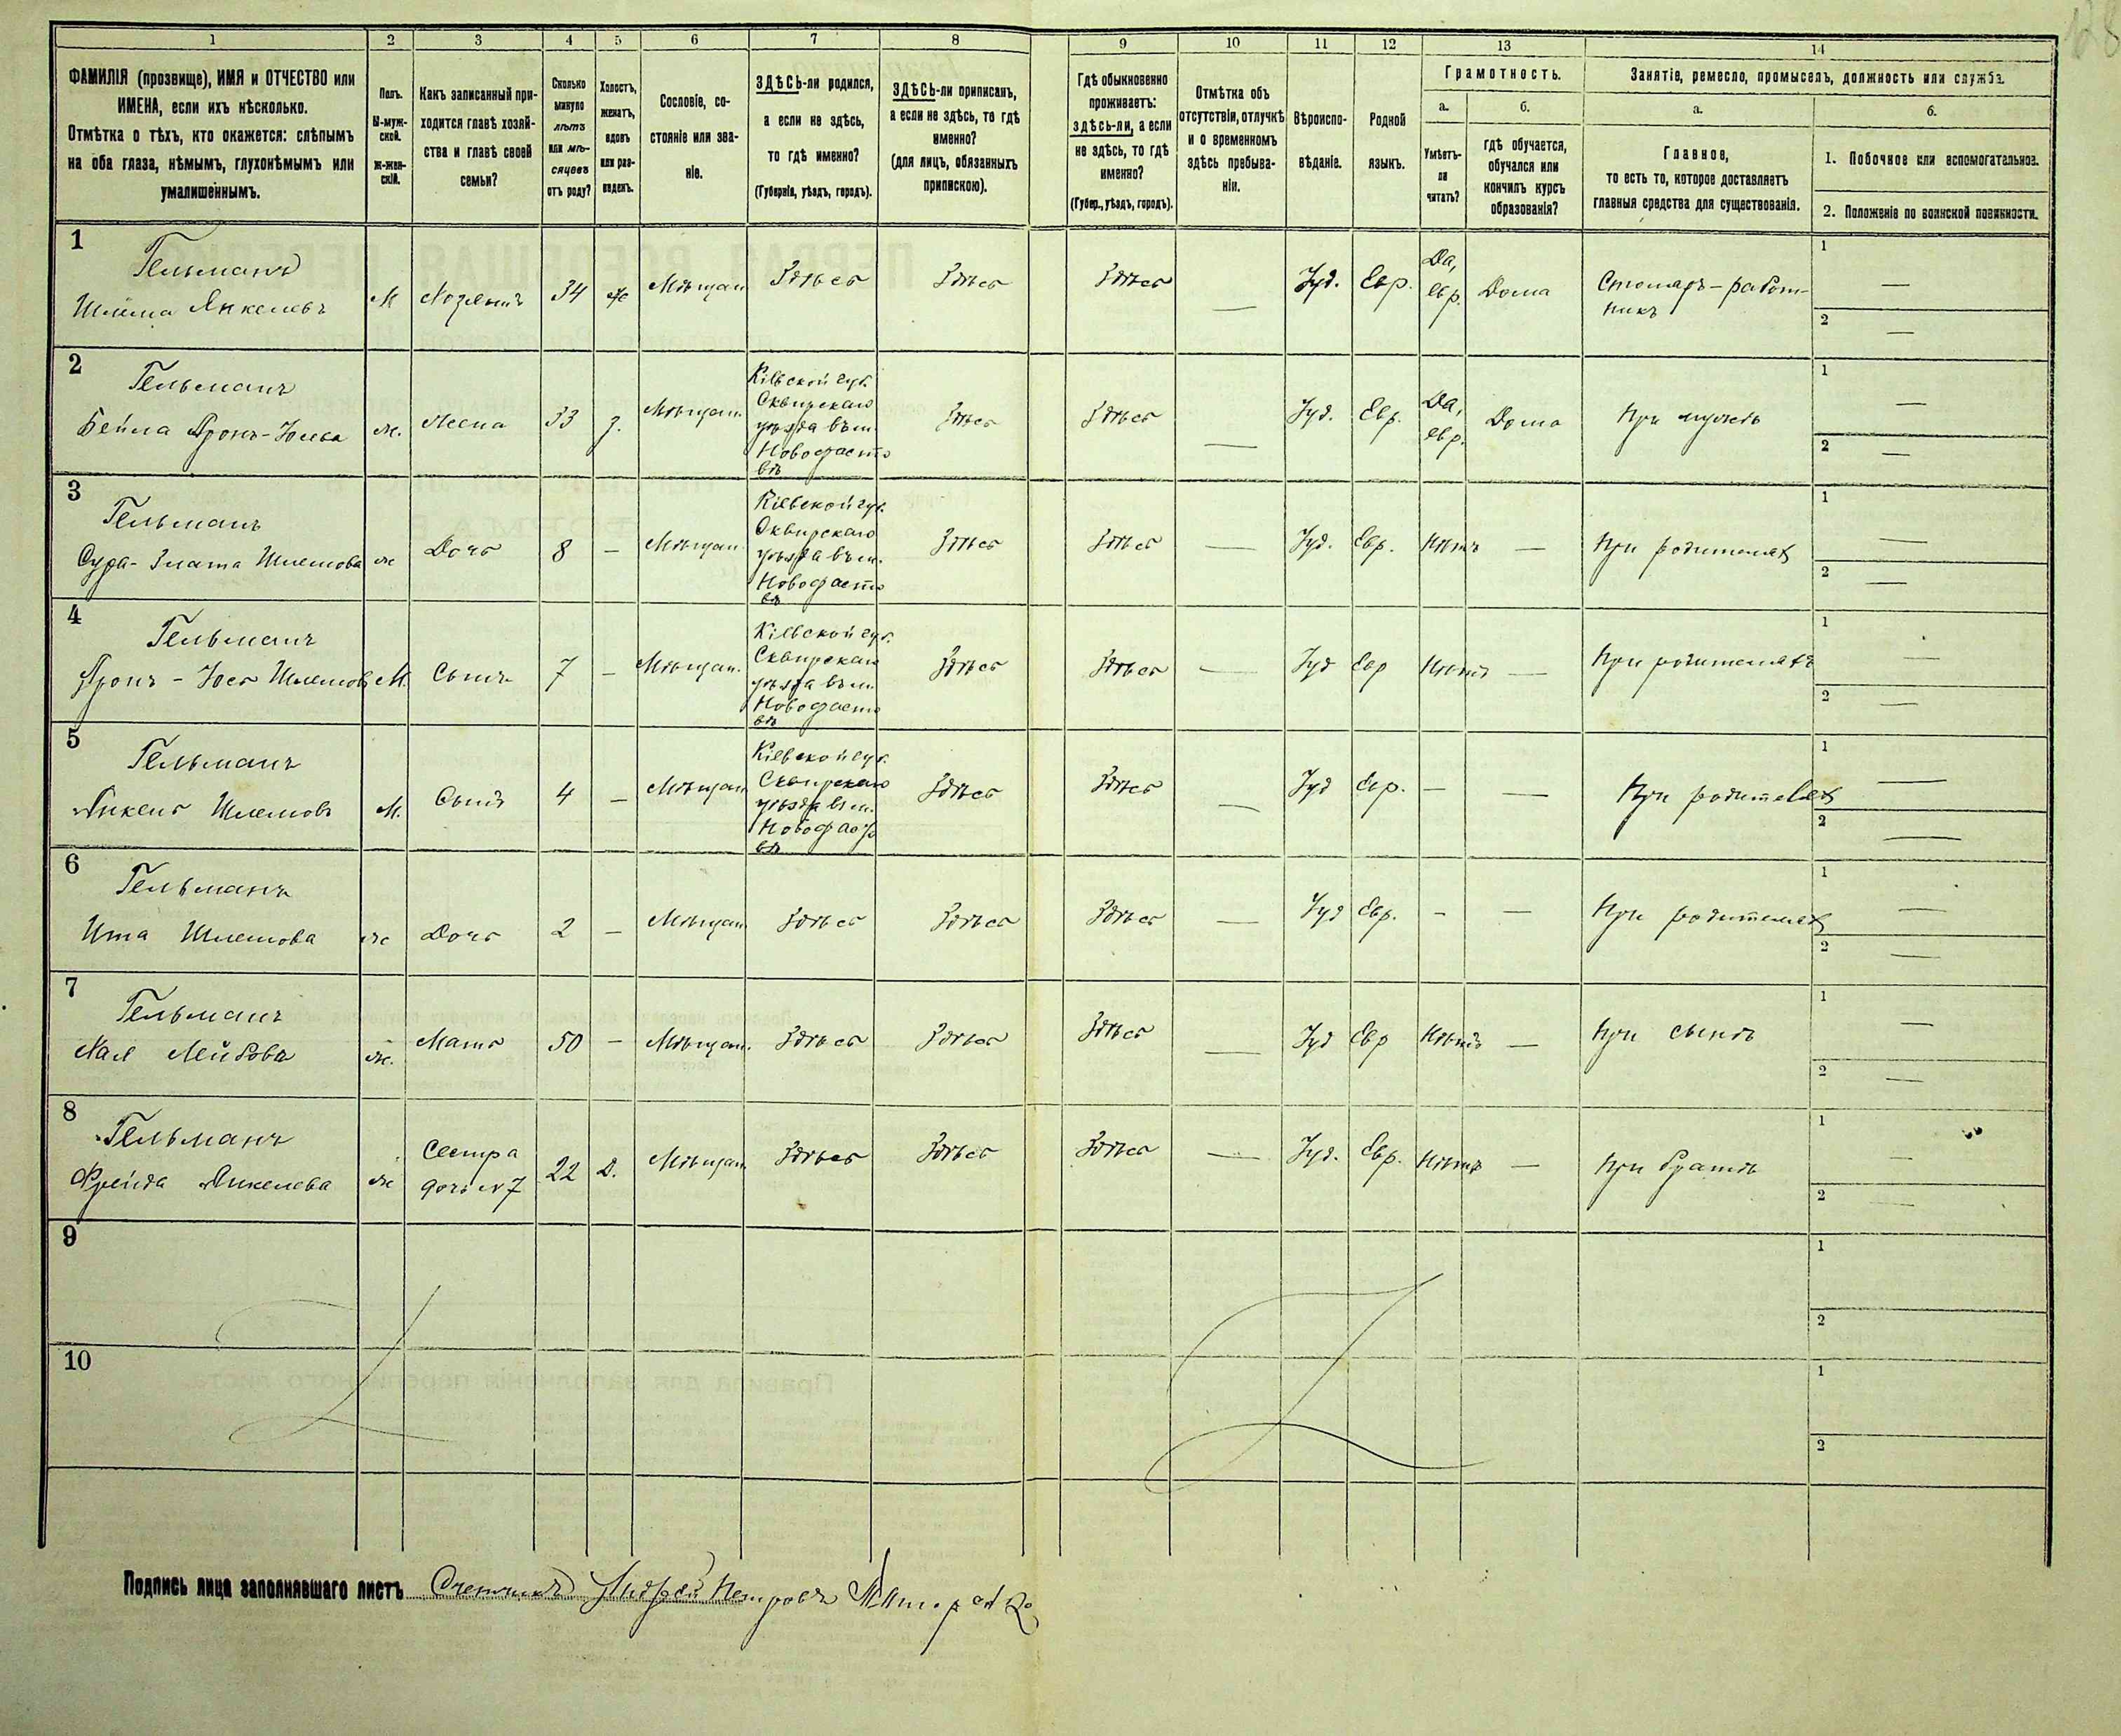 1 2 3 4 5 6 7 8 9 10 11 12 13 14
ФАМИЛІЯ (прозвище), ИМЯ и ОТЧЕСТВО или
ИМЕНА, если ихъ нѣсколько.
Отмѣтка о тѣхъ, кто окажется: слѣпымъ
на оба глаза, нѣмымъ, глухонѣмымъ или
умалишённымъ.
Полъ.
М-муж-
ской.
Ж-жен-
скій.
Какъ записанный при-
ходится главѣ хозяй-
ства и главѣ своей
семьи?
Сколько
минуло
лѣтъ
или мѣ-
сяцевъ
отъ роду?
Холостъ,
женатъ,
вдовъ
или раз-
веденъ.
Сословіе, со-
стояніе или зва-
ніе.
ЗДѢСЬ-ли родился,
а если не здѣсь,
то гдѣ именно?
(Губернія, уѣздъ, городъ).
ЗДѢСЬ-ли приписанъ,
а если не здѣсь, то гдѣ
именно?
(для лицъ, обязанныхъ
припискою).
Гдѣ обыкновенно
проживаетъ:
здѣсь-ли, а если
не здѣсь, то гдѣ
именно?
(Губер., уѣздъ, городъ).
Отмѣтка объ
отсутствіи, отлучкѣ
и о временномъ
здѣсь пребыва-
ніи.
Вѣроиспо-
вѣданіе.
Родной
языкъ.
Грамотность.
а.
Умѣетъ-
ли
читать?
б.
гдѣ обучается,
обучался или
кончилъ курсъ
образованія?
Занятіе, ремесло, промыселъ, должность или служба.
а.
Главное,
то есть то, которое доставляетъ
главныя средства для существованія.
б.
1. Побочное или вспомогательное.
2. Положеніе по воинской повинности.
1
Гельманъ
Шлема Янкелевъ
М
Хозяинъ
34
ж
Мѣщан
Здѣсь
Здѣсь
Здѣсь
—
Іуд.
Евр.
Да,
евр.
Дома
Столяръ-работ-
никъ
1 —
2 —
2
Гельманъ
Бейла Аронъ-Юсева
ж.
Жена
33
з.
Мѣщан.
Кіевской губ.
Сквирскаго
уѣзда въ м.
Новофасто
вѣ
Здѣсь
Здѣсь
—
Іуд.
Евр.
Да,
евр.
Дома
При мужѣ
1 —
2 —
3
Гельманъ
Сура-Злата Шлемова
ж
Дочь
8
—
Мѣщан.
Кіевской губ.
Сквирскаго
уѣзда въ м.
Новофасто
вѣ
Здѣсь
Здѣсь
—
Іуд.
Евр.
Нѣтъ
—
При родителях
1 —
2 —
4
Гельманъ
Аронъ-Юсь Шлемов
М.
Сынъ
7
—
Мѣщан.
Кіевской губ.
Сквирскаго
уѣзда въ м.
Новофасто
вѣ
Здѣсь
Здѣсь
—
Іуд
Евр
Нѣтъ
—
При родителяхъ
1 —
2 —
5
Гельманъ
Янкель Шлемовъ
М.
Сынъ
4
—
Мѣщан
Кіевской губ.
Сквирскаго
уѣзда въ м.
Новофасто
вѣ
Здѣсь
Здѣсь
—
Іуд
Евр.
—
—
При родителях
1 —
2 —
6
Гельманъ
Ита Шлемова
ж
Дочь
2
—
Мѣщан
Здѣсь
Здѣсь
Здѣсь
—
Іуд
Евр.
-
—
При родителях
1 —
2 —
7
Гельманъ
Хая Лейбова
ж.
Мать
50
—
Мѣщан.
Здѣсь
Здѣсь
Здѣсь
—
Іуд
Евр
Нѣтъ
—
При сынѣ
1 —
2 —
8
Гельманъ
Фрейда Янкелева
ж
Сестра
дочь N 7
22
Д.
Мѣщан
Здѣсь
Здѣсь
Здѣсь
—
Іуд.
Евр.
Нѣтъ
—
При братѣ
1 —
2 —
9
1
2
10
1
2
Подпись лица заполнявшаго листъ Счетчикъ Андрей Петровъ